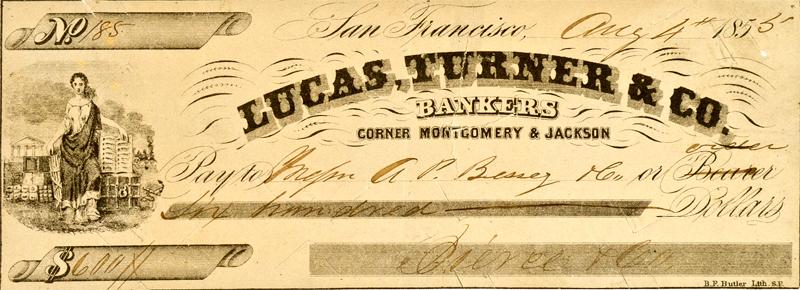 No 185
San Francisco, Aug 4th 1855
LUCAS, TURNER & CO.
BANKERS
CORNER MONTGOMERY & JACKSON
order
Pay to Messrs A. P. Bessey & Co or Bearer
Six hundred Dollars
$600
Pierce & Co
B.F. Butler Lith. S.F.